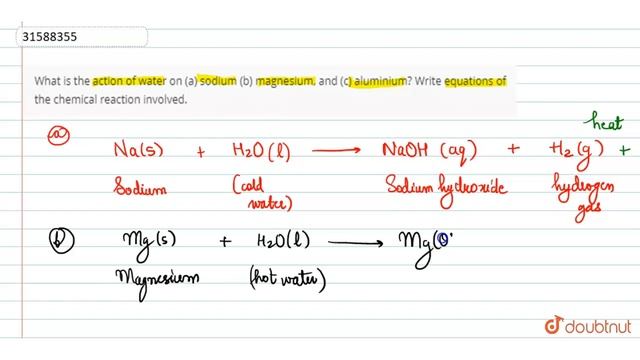 31588355
What is the action of water on (a) sodium (b) magnesium, and (c) aluminium? Write equations of
the chemical reaction involved.
heat
(a) Na(s) + H2O(l) → NaOH (aq) + H2(g) +
Sodium (cold water) Sodium hydroxide hydrogen gas
(b) Mg(s) + H2O(l) → Mg(O
Magnesium (hot water)
doubtnut